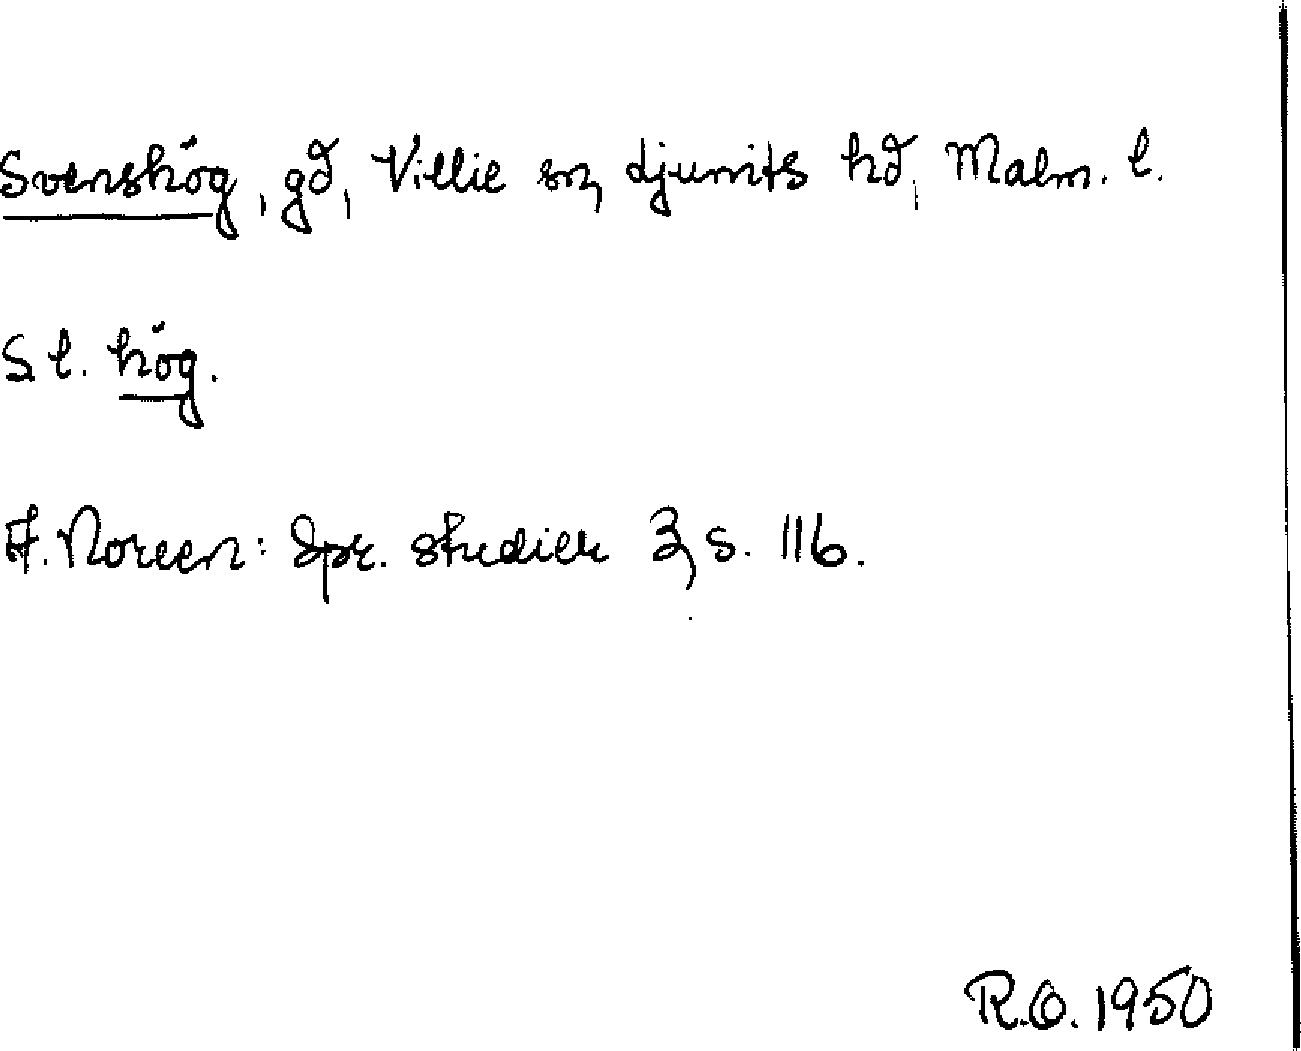 Svenshög, gd, Villie sn, Ljunits hd, Malm. l.
S l. hög.
A. Noreen: Spr. studier 3, s. 116.
R.O. 1950